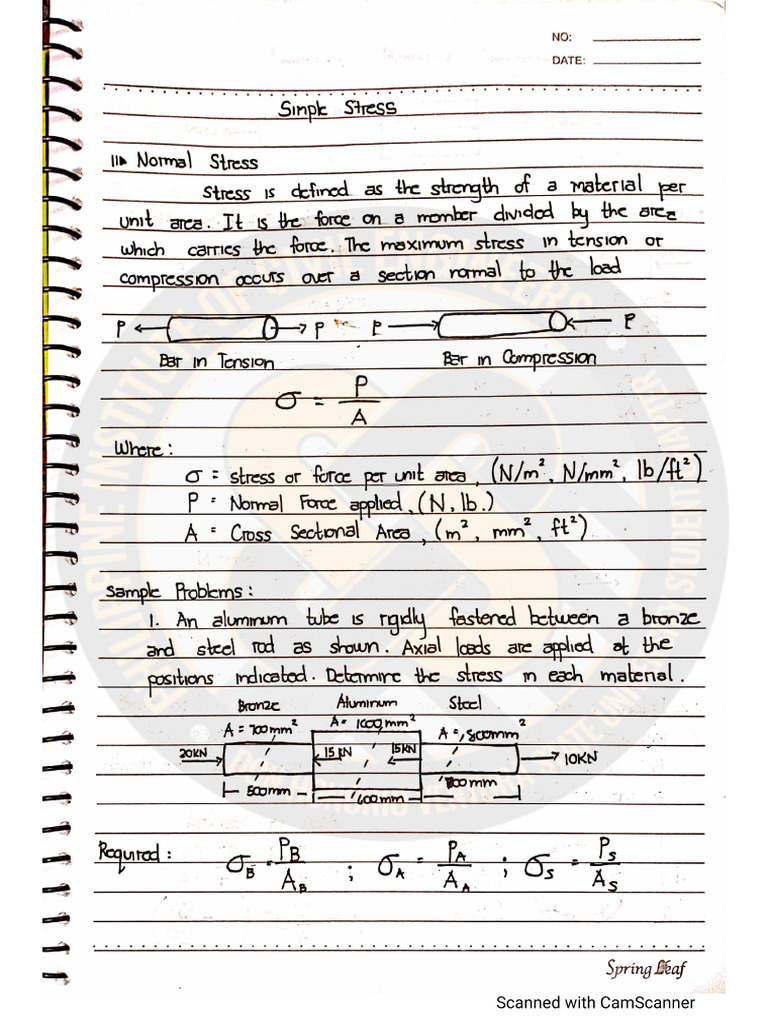 NO:
DATE:
Simple Stress
11▸ Normal Stress
Stress is defined as the strength of a material per
unit area. It is the force on a member divided by the area
which carries the force. The maximum stress in tension or
compression occurs over a section normal to the load
P P P P
Bar in Tension Bar in Compression
σ = P
A
Where:
σ = stress or force per unit area, (N/m², N/mm², lb/ft²)
P = Normal Force applied, (N, lb.)
A = Cross Sectional Area, (m², mm², ft²)
Sample Problems:
1. An aluminum tube is rigidly fastened between a bronze
and steel rod as shown. Axial loads are applied at the
positions indicated. Determine the stress in each material.
Bronze Aluminum Steel
A = 700mm² A = 1000mm² A = 800mm²
20KN 15KN 15KN 10KN
500mm 600mm 700mm
Required: σB = PB ; σA = PA ; σS = PS
AB AA AS
Spring Leaf
Scanned with CamScanner